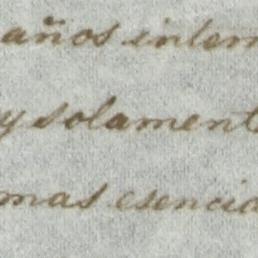 años intern
y solament
mas esencia